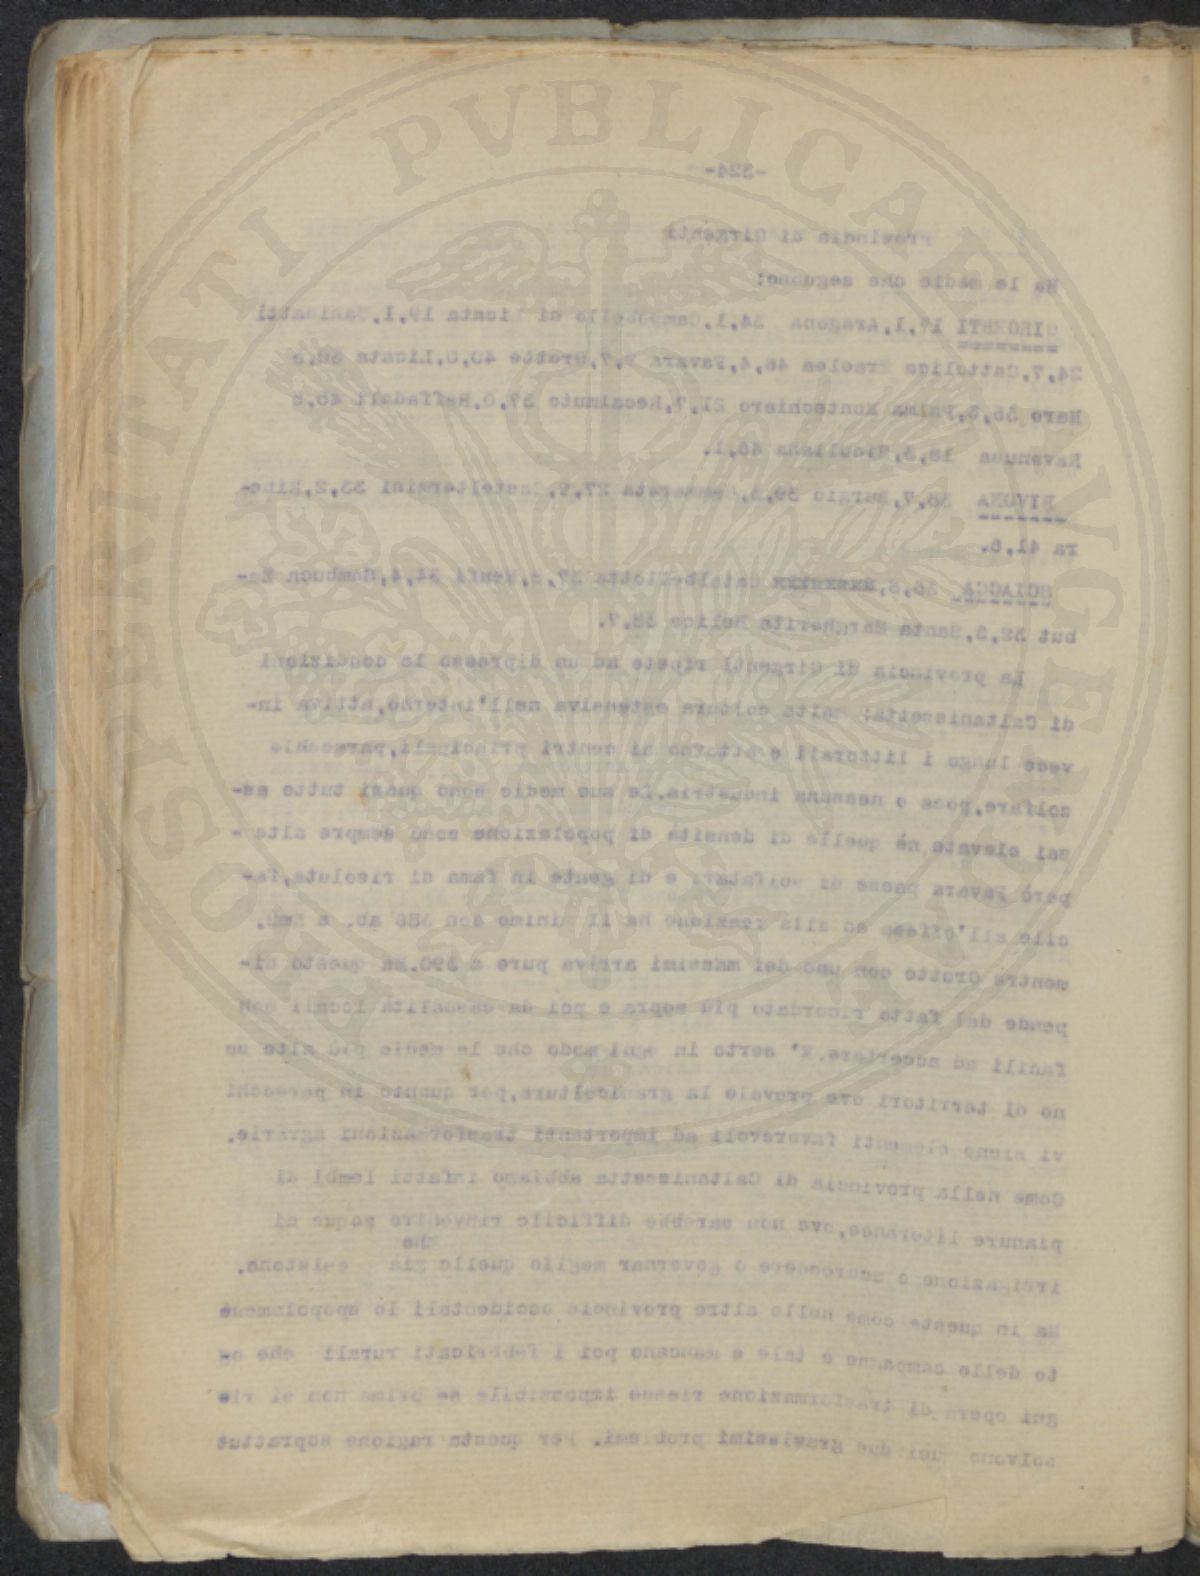 -324-
Provincia di Girgenti
Ha le medie che seguono:
GIRGENTI 19,1,Aragona 34,1,Campobello di Licata 19,1,Canicatti
24,7,Cattolica Eraclea 46,4,Favara 9,7,Grotte 40,0,Licata
Naro 36,6,Palma Montechiaro 21,7,Racalmuto 37,0,Raffadali
Ravanusa 18,3,Siculiana 46,1.
BIVONA 38,7,Burgio Cammarata 27,9,Casteltermini 33,2,Ribe-
ra 41,6.
SCIACCA 36,8, Caltabellotta Menfi 34,4,Sambuca Za-
but 32,6,Santa Margherita Belice 38,7.
La provincia di Girgenti ripete ad un dipresso le condizioni
di Caltanissetta: molta coltura estensiva nell'interno,attiva in-
vece lungo i littorali e attorno ai centri principali,parecchie
solfare,poca o nessuna industria.Le sue medie sono quasi tutte as-
sai elevate nè quelle di densità di popolazione sono sempre alte -
però Favara paese di solfatari e di gente in fama di risoluta,fa-
cile all'offesa ed alla reazione ha il minimo con 386 ab. a Kmq.
mentre Grotte con uno dei massimi arriva pure a 390.Ma questo di-
pende dal fatto ricordato più sopra e poi da casualità locali non
facili ad accertare.E' certo in ogni modo che le medie più alte so
no di territori ove prevale la granicoltura,per quanto in parecchi
vi siano elementi favorevoli ad importanti trasformazioni agrarie.
Come nella provincia di Caltanissetta abbiamo infatti lembi di
pianure litoranee,ove non sarebbe difficile rinvenire acque di
che
irrigazione o accrescere o governar meglio quelle già esistono.
Ma in questa come nelle altre provincie occidentali lo spopolamenø
to delle campagne è tale e mancano poi i fabbricati rurali che og
gni opera di trasformazione riesce impossibile se prima non si ris
solvono quei due gravissimi problemi. Per questa ragione soprattut
PVBLICAE
PROSPERITATI
AVGENDAE